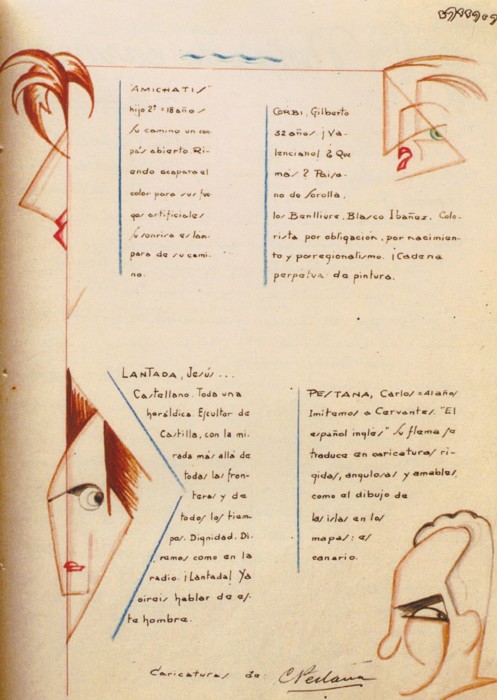 "AMICHATIS"
hijo 2º = 18 años
Su camino un com-
pás abierto. Ri-
endo acapara el
color para sus fue-
gos artificiales
Su sonrisa es lám-
para de su cami-
no.
CORBI, Gilberto
32 años. ¡Va-
lenciano! ¿Que
mas? Paisa-
no de Sorolla,
los Benlliure, Blasco Ibañez. Colo-
rista por obligación, por nacimien-
to y por regionalismo. ¡Cadena
perpetua de pintura.
LANTADA, Jesús...
Castellano. Toda una
heráldica. Escultor de
Castilla, con la mi-
rada más allá de
todas las fron-
teras y de
todos los tiem-
pos. Dignidad. Di-
remos como en la
radio. ¡Lantada! Ya
oireis hablar de es-
te hombre.
PESTANA, Carlos = 41 años
Imitemos a Cervantes. "El
español inglés" Su flema se
traduce en caricaturas ri-
gidas, angulosas y amables,
como el dibujo de
las islas en los
mapas: es
canario.
Caricaturas de: C Pestana